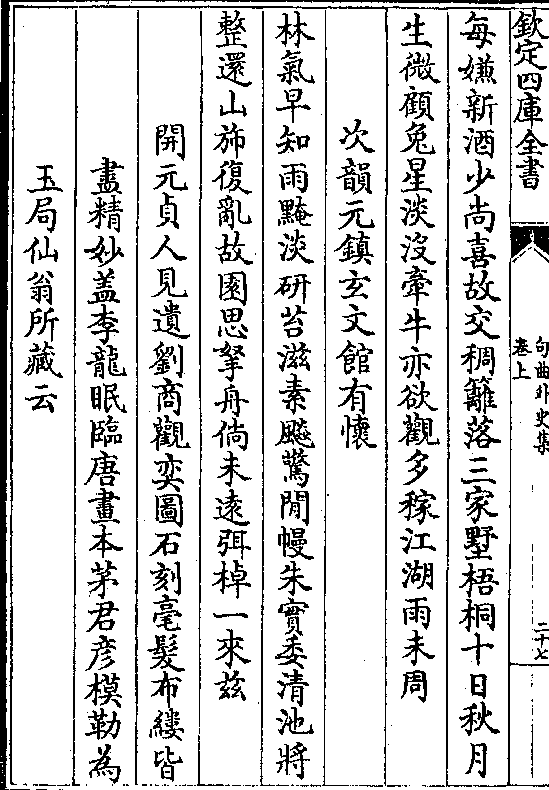 欽定四庫全書
句曲外史集
卷上
二十七
每嫌新酒少尚喜故交稠籬落三家墅梧桐十日秋月
生微顧兔星淡没牽牛亦欲觀多稼江湖雨未周
次韻元鎮玄文館有懷
林氣早知雨黤淡研苔滋素飈驚閒幔朱實委清池將
整還山斾復亂故園思拏舟倘未遠弭棹一來兹
開元貞人見遺劉商觀奕圖石刻毫髮布縷皆
盡精妙盖李龍眠臨唐畫本茅君彦模勒為
玉局仙翁所藏云